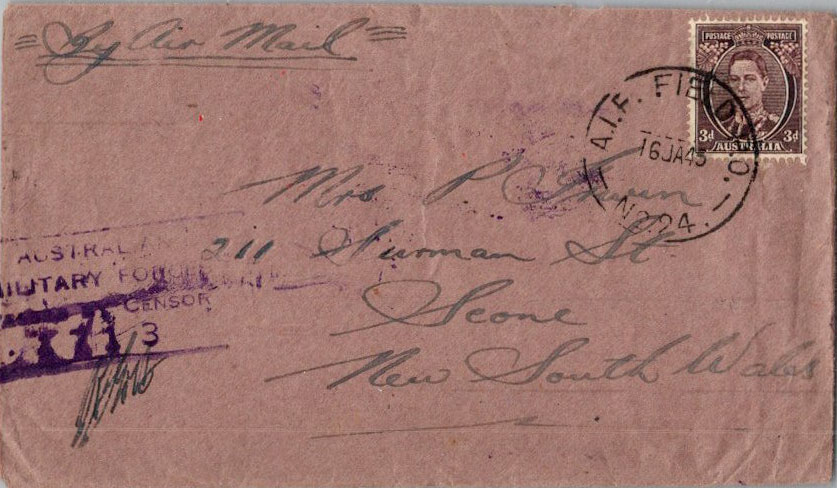 = By Air Mail =
POSTAGE POSTAGE
3d 3d
AUSTRALIA
A.I.F. FIELD P.O.
16JA43
No 24
Mrs P
211 St
Scone
New South Wales
AUSTRALIAN
MILITARY FORCES
CENSOR
3